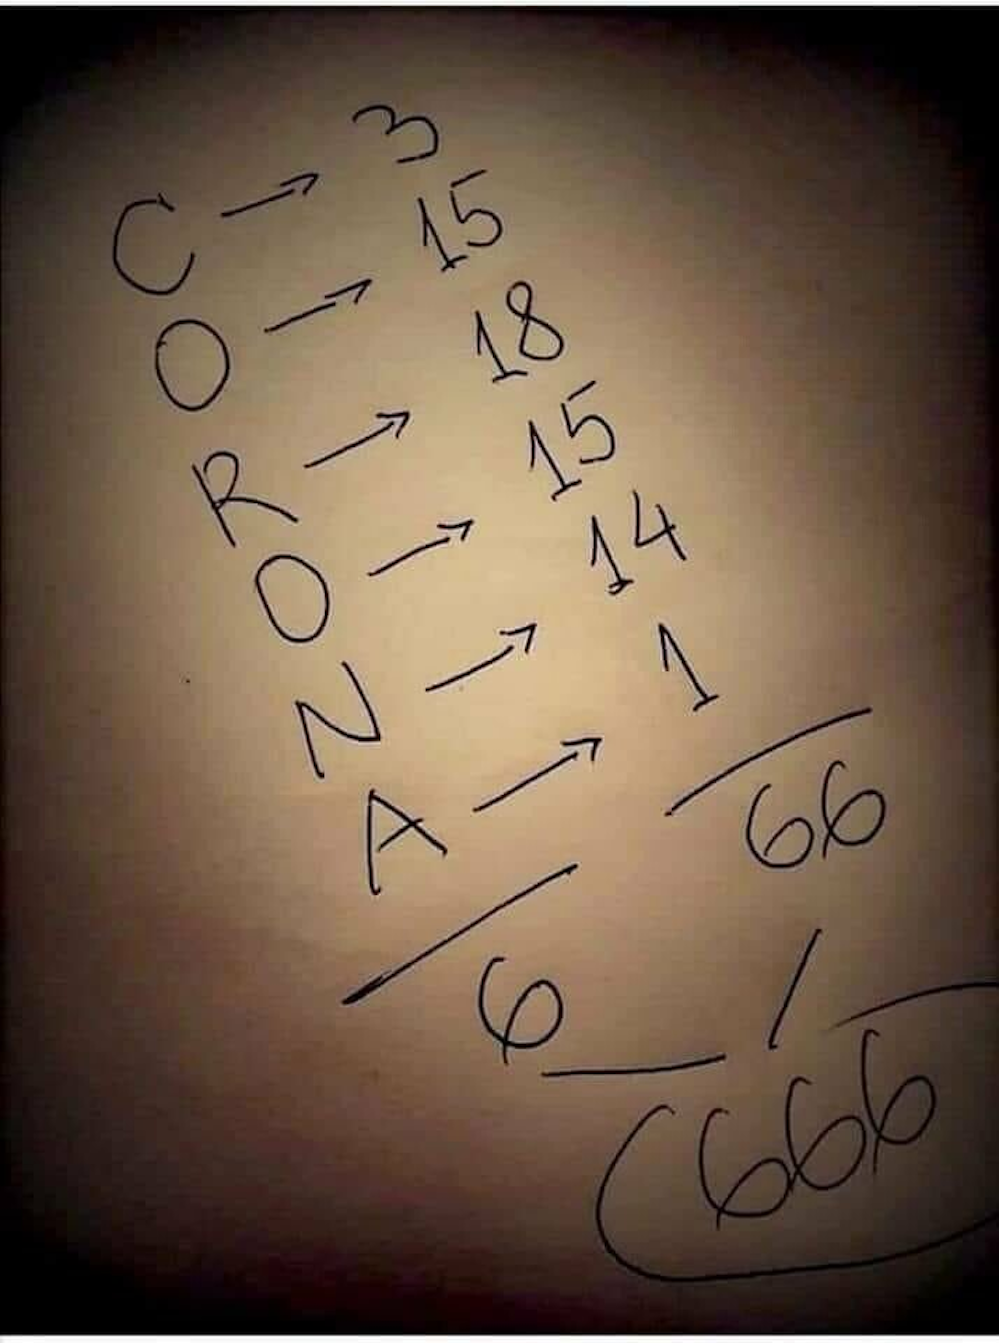 C → 3
O → 15
R → 18
O → 15
N → 14
A → 1
66
6
666